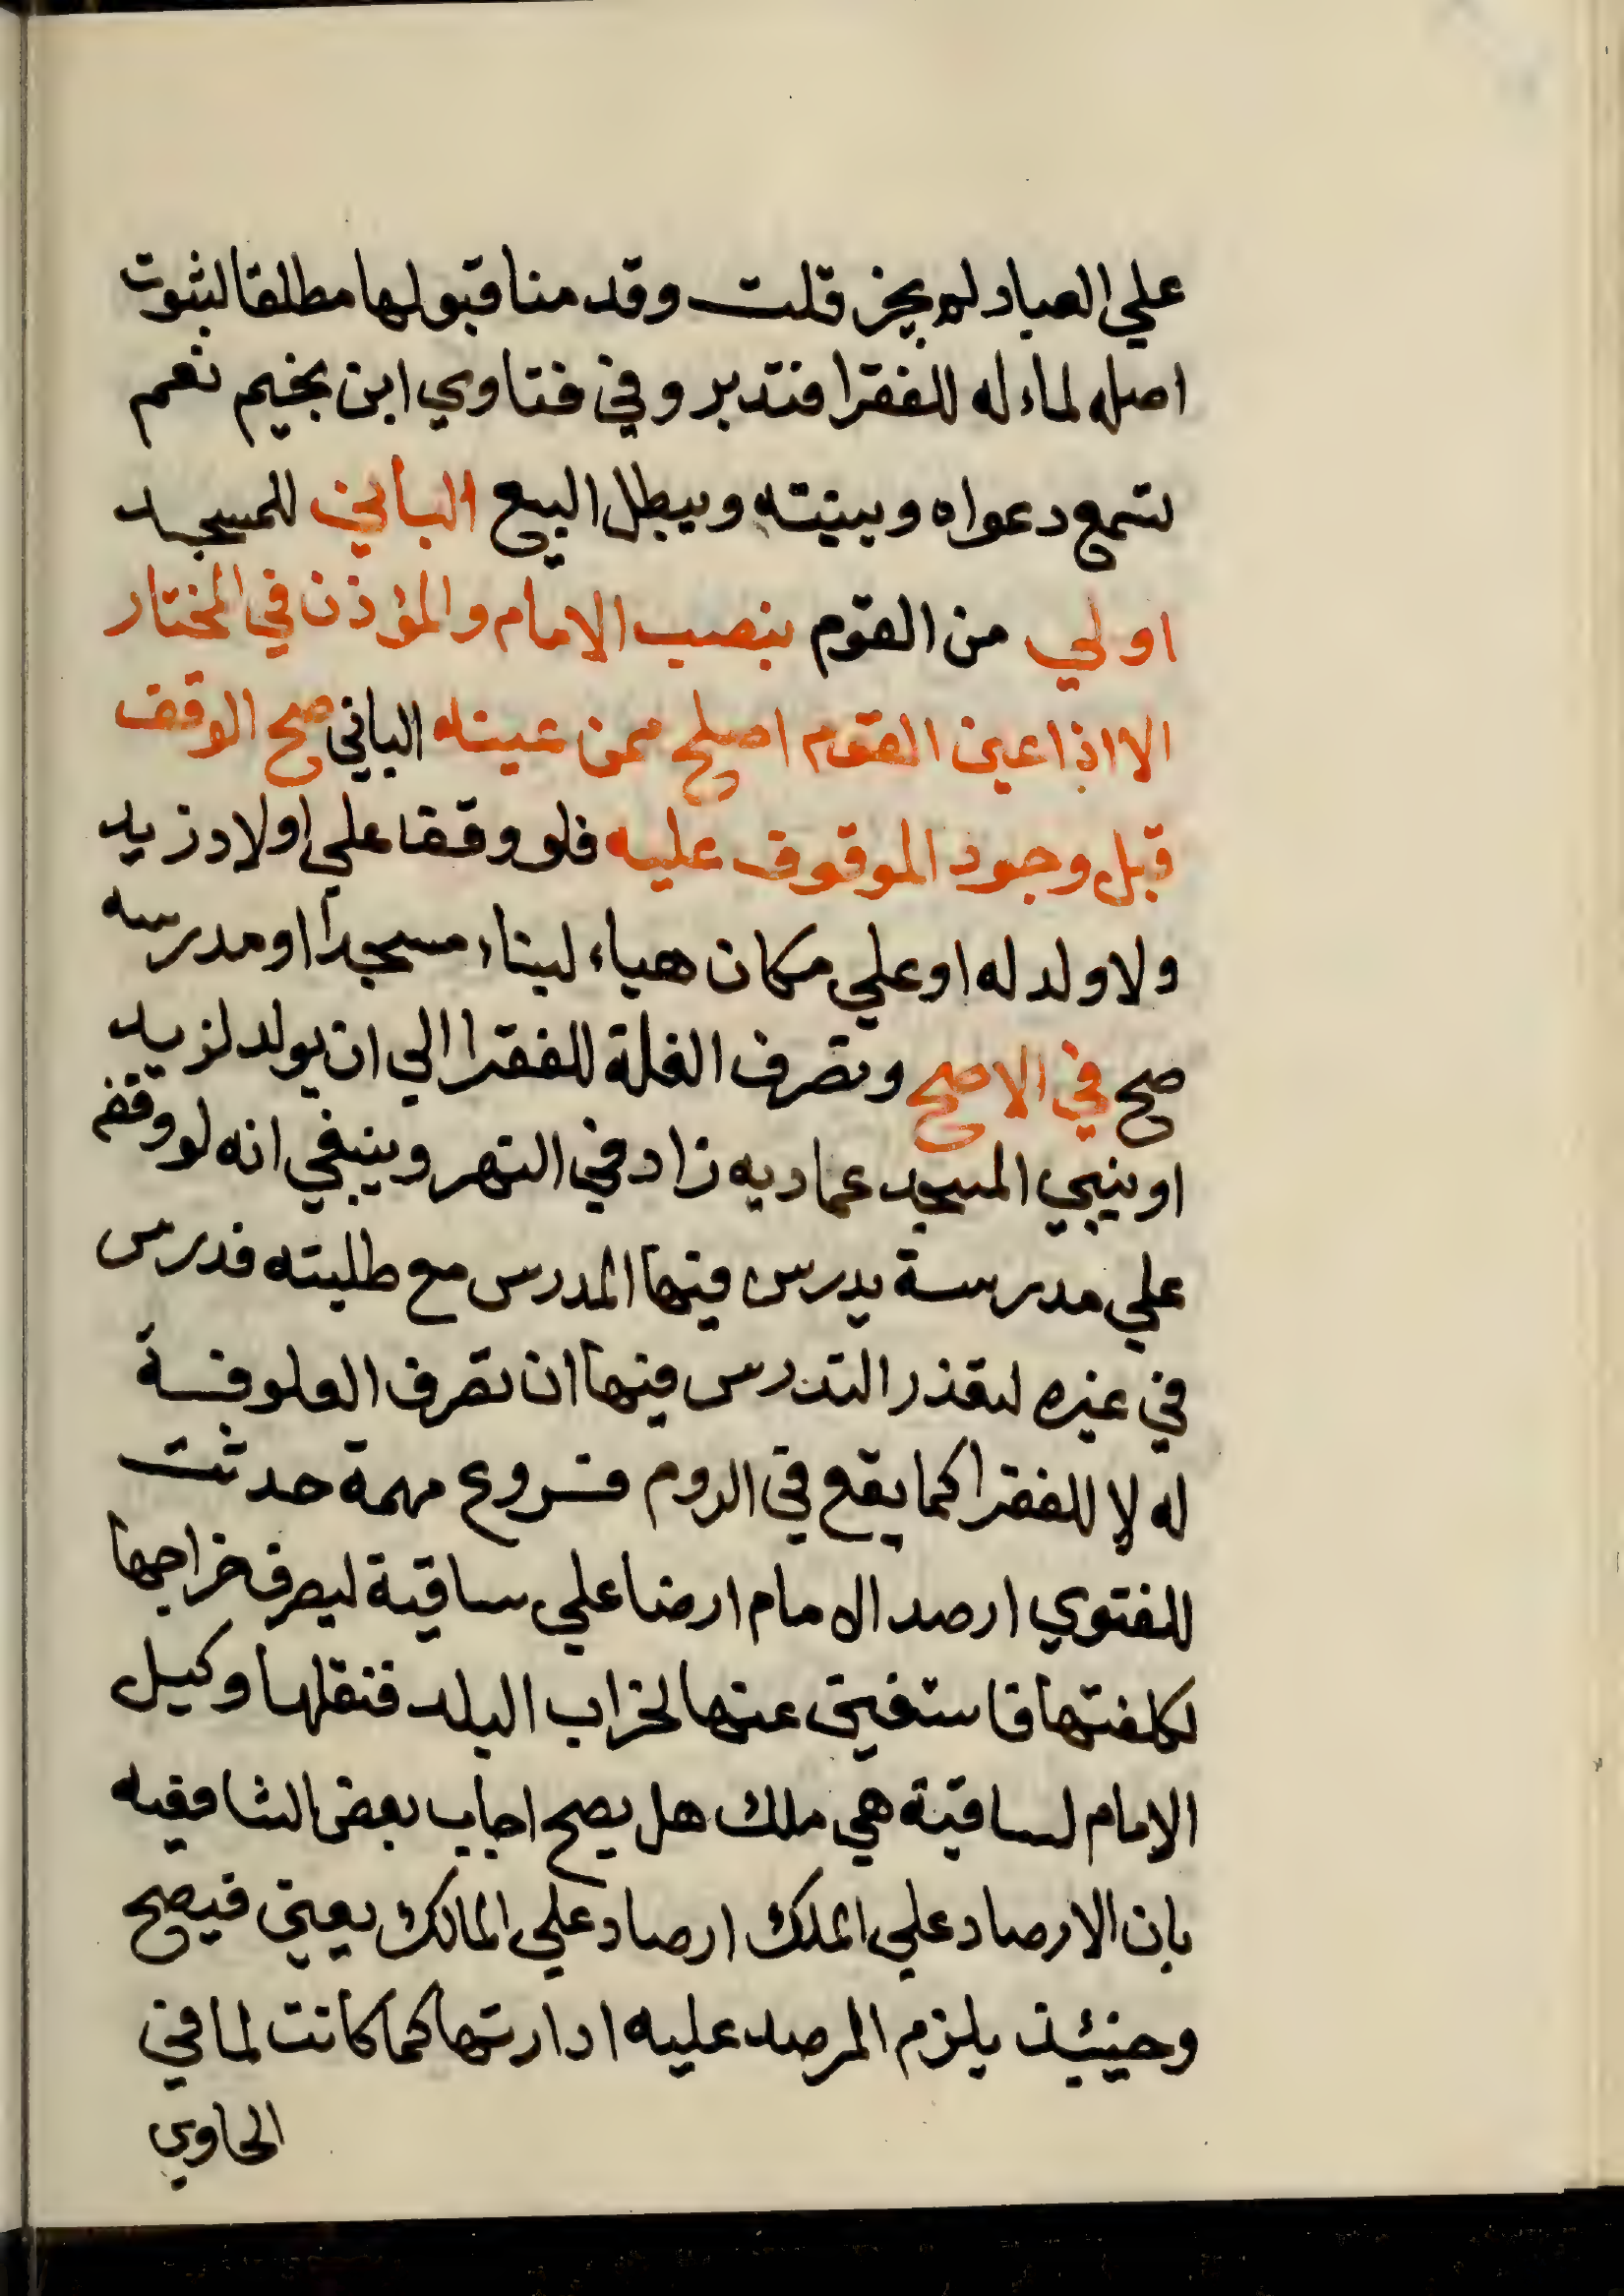 علي العباد لم يجز قلت وقد منا قبولها مطلقا لثبوت
اصله لماءله للفقرا فتدبر وفي فتاوي ابن نجيم نعم
تسمع دعواه وبينته ويبطل البيع الباني للمسجد
اولي من القوم بنصب الامام والمؤذن في المختار
الا اذا عين القوم اصلح ممن عينه الباني صح الوقف
قبل وجود الموقوف عليه فلو وقفا علي اولاد زيد
ولا ولد له او علي مكان هياء لبناء مسجداً او مدرسه
صح في الاصح وتصرف الغلة للفقرا الي ان يولد لزيد
او يبني المسجد عماديه زاد في النهر وينبغي انه لو وقفه
علي مدرسة يدرس فيها المدرس مع طلبته فدرس
في غيره لتعذر التدرس فيها ان تصرف العلوفة
له لا للفقرا كما يقع في الروم فروع مهمة حدثت
للفتوي ارصد الامام ارضا علي ساقية ليصرف خراجها
لكلفتها فاستغني عنها لخراب البلد فنقلها وكيل
الامام لساقية هي ملك هل يصح اجاب بعض الشافعيه
بان الارصاد علي الملك ارصاد علي المالك يعني فيصح
وحينئذ يلزم المرصد عليه ادارتها كما كانت لما في
الحاوي